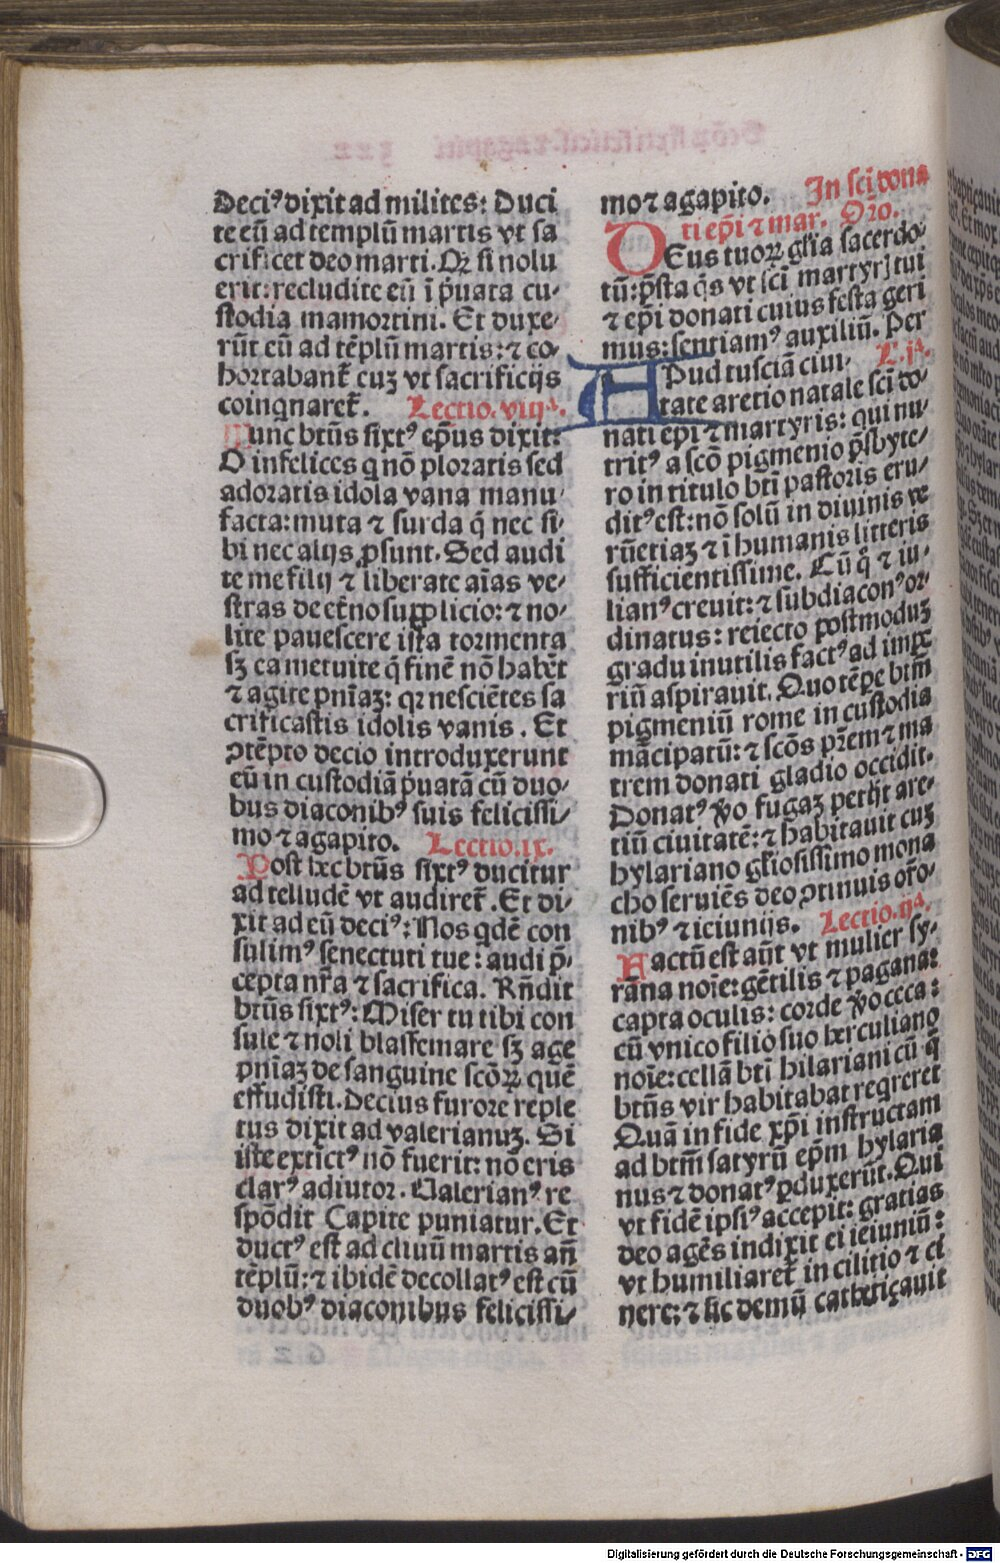 Deciꝰ dixit ad milites: Duci
te eū ad templū martis vt sa
crificet deo marti. Qꝛ si nolu
erit: recludite eū ī p̄uata cu-
stodia mamortini. Et duxe-
rūt eū ad tēplū martis: ⁊ co-
hortabant̄ euꝫ vt sacrificijs
coinqnaret̄. Lectio. viijª.
Tunc btūs sixtꝰ ep̄us dixit:
O infelices q nō ploratis sed
adoratis idola vana manu
facta: muta ⁊ surda q̄ nec si-
bi nec alijs ꝓsunt. Sed audi
te me filij ⁊ liberate aīas ve-
stras de et̄no supplicio: ⁊ no-
lite pauescere ista tormenta
sꝫ ea metuite q̄ finē nō habēt
⁊ agite pnīaꝫ: qꝛ nesciētes sa
crificastis idolis vanis. Et
ꝯtēpto decio introduxerunt
eū in custodiā p̄uatā cū duo-
bus diaconibꝰ suis felicissi-
mo ⁊ agapito. Lectio. ix.
Post hec btūs sixtꝰ ducitur
ad telludē vt audiret̄. Et di-
xit ad eū deciꝰ: Nos qdē con
sulimꝰ senectuti tue: audi p̄-
cepta nr̄a ⁊ sacrifica. Rn̄dit
btūs sixtꝰ: Miser tu tibi con
sule ⁊ noli blasfemare sꝫ age
pnīaꝫ de sanguine scōꝝ quē
effudisti. Decius furore reple
tus dixit ad valerianuꝫ. Si
iste extīctꝰ nō fuerit: nō eris
clarꝰ adiutor. Valerianꝰ re
spōdit Capite puniatur. Et
ductꝰ est ad cliuū martis an̄
tēplū: ⁊ ibidē decollatꝰ est cū
duobꝰ diaconibus felicissi-
mo ⁊ agapito. In scī dona
ti ep̄i ⁊ mar. Oro.
DEus tuoꝝ gl̄ia sacerdo-
tū: p̄sta q̄s vt scī martyrꝭ tui
⁊ ep̄i donati cuius festa geri
mus: sentiamꝰ auxiliū. Per
APud tusciā ciui- L. jª.
tate aretio natale scī do-
nati ep̄i ⁊ martyris: qui nu-
tritꝰ a scō pigmenio p̄sbyte-
ro in titulo btī pastoris eru-
ditꝰ est: nō solū in diuinis ve
rūetiaꝫ ⁊ ī humanis litteris
sufficientissime. Cū q̄ ⁊ iu-
lianꝰ creuit: ⁊ subdiaconꝰ or-
dinatus: reiecto postmoduꝫ
gradu inutilis factꝰ ad impe
riū aspirauit. Quo tēꝑe btm̄
pigmeniū rome in custodia
mācipatū: ⁊ scōs pr̄em ⁊ ma
trem donati gladio occidit.
Donatꝰ v̄o fugaꝫ petijt are-
tiū ciuitatē: ⁊ habitauit cuꝫ
hylariano gl̄iosissimo mona
cho seruiēs deo ꝯtinuis or̄o-
nibꝰ ⁊ ieiunijs. Lectio. ijª.
Factū est aūt vt mulier sy-
rana noīe: gētilis ⁊ pagana:
capta oculis: corde v̄o ceca:
cū vnico filio suo herculiano
noīe: cellā btī hilariani cū q̄
btūs vir habitabat reqreret
Quā in fide xp̄i instructam
ad btm̄ satyrū ep̄m hylaria
nus ⁊ donatꝰ ꝑduxerūt. Qui
vt fidē ipsiꝰ accepit: gratias
deo agēs indixit ei ieiuniū:
vt humiliaret̄ in cilitio ⁊ ci
nere: ⁊ sic demū cathetiçauit
Digitalisierung gefördert durch die Deutsche Forschungsgemeinschaft - DFG